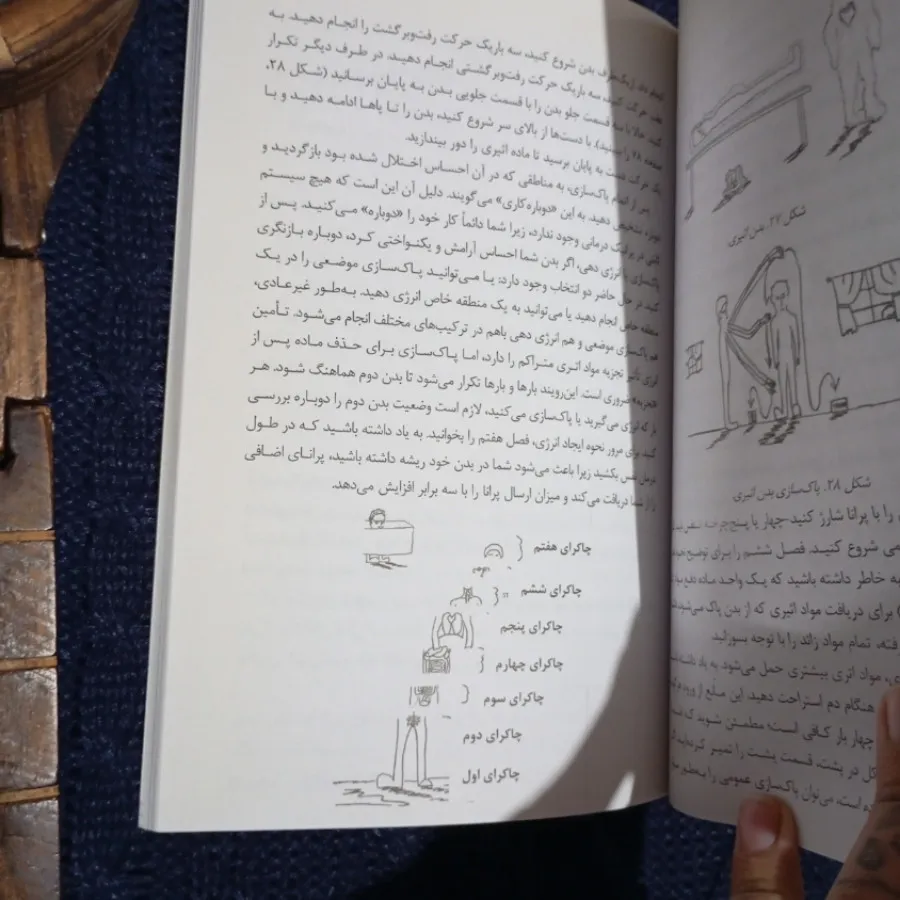 بدن شروع کنید، سه باریک حرکت رفت‌وبرگشت را انجام دهید. به
حرکت کنید، سه باریک حرکت رفت‌وبرگشتی انجام دهید. در طرف دیگر تکرار
کنید. حالا با سه قسمت جلو بدن را با قسمت جلویی بدن به پایان برسانید (شکل ۲۸،
با دست‌ها از بالای سر شروع کنید، بدن را تا پاها ادامه دهید و با
یک حرکت دست به پایان برسید تا ماده اثیری را دور بیندازید.
پس از اتمام پاک‌سازی، به مناطقی که در آن احساس اختلال شده بود بازگردید و
دهید. به این «دوباره‌کاری» می‌گویند. دلیل آن این است که هیچ سیستم
درمانی وجود ندارد، زیرا شما دائماً کار خود را «دوباره» می‌کنید. پس از
پاک‌سازی یا انرژی دهی، اگر بدن شما احساس آرامش و یکنواختی کرد، دوباره بازنگری
کنید. در حال حاضر دو انتخاب وجود دارد: یا می‌توانید پاک‌سازی موضعی را در یک
منطقه خاص انجام دهید یا می‌توانید به یک منطقه خاص انرژی دهید. به‌طور غیرعادی،
هم پاک‌سازی موضعی و هم انرژی دهی باهم در ترکیب‌های مختلف انجام می‌شود. تأمین
انرژی تأثیر تجزیه مواد اتری متراکم را دارد، اما پاک‌سازی برای حذف ماده پس از
«تجزیه» ضروری است. این‌روند بارها و بارها تکرار می‌شود تا بدن دوم هماهنگ شود. هر
بار که انرژی می‌گیرید یا پاک‌سازی می‌کنید، لازم است وضعیت بدن دوم را دوباره بررسی
کنید. برای مرور نحوه ایجاد انرژی، فصل هفتم را بخوانید. به یاد داشته باشید که در طول
درمان نفس بکشید زیرا باعث می‌شود شما در بدن خود ریشه داشته باشید، پرانای اضافی
را از شما دریافت می‌کند و میزان ارسال پرانا را تا سه برابر افزایش می‌دهد.
چاکرای هفتم
چاکرای ششم
چاکرای پنجم
چاکرای چهارم
چاکرای سوم
چاکرای دوم
چاکرای اول
شکل ۲۷. بدن اثیری.
شکل ۲۸. پاک‌سازی بدن اثیری
را با پرانا شارژ کنید-چهار یا پنج
می شروع کنید. فصل ششم را برای توضیح
به خاطر داشته باشید که یک واحد ماده دفع
برای دریافت مواد اثیری که از بدن پاک می‌شود
فته، تمام مواد زائد را با توجه بسوزانید.
مواد اتری بیشتری حمل می‌شود. به یاد داشته
هنگام دم استراحت دهید. این مبلغ از ورود
چهار بار کافی است؛ مطمئن شوید که
کل در پشت، قسمت پشت را تمیز کرده‌اید
ده است، می‌توان پاک‌سازی عمومی را به‌طور